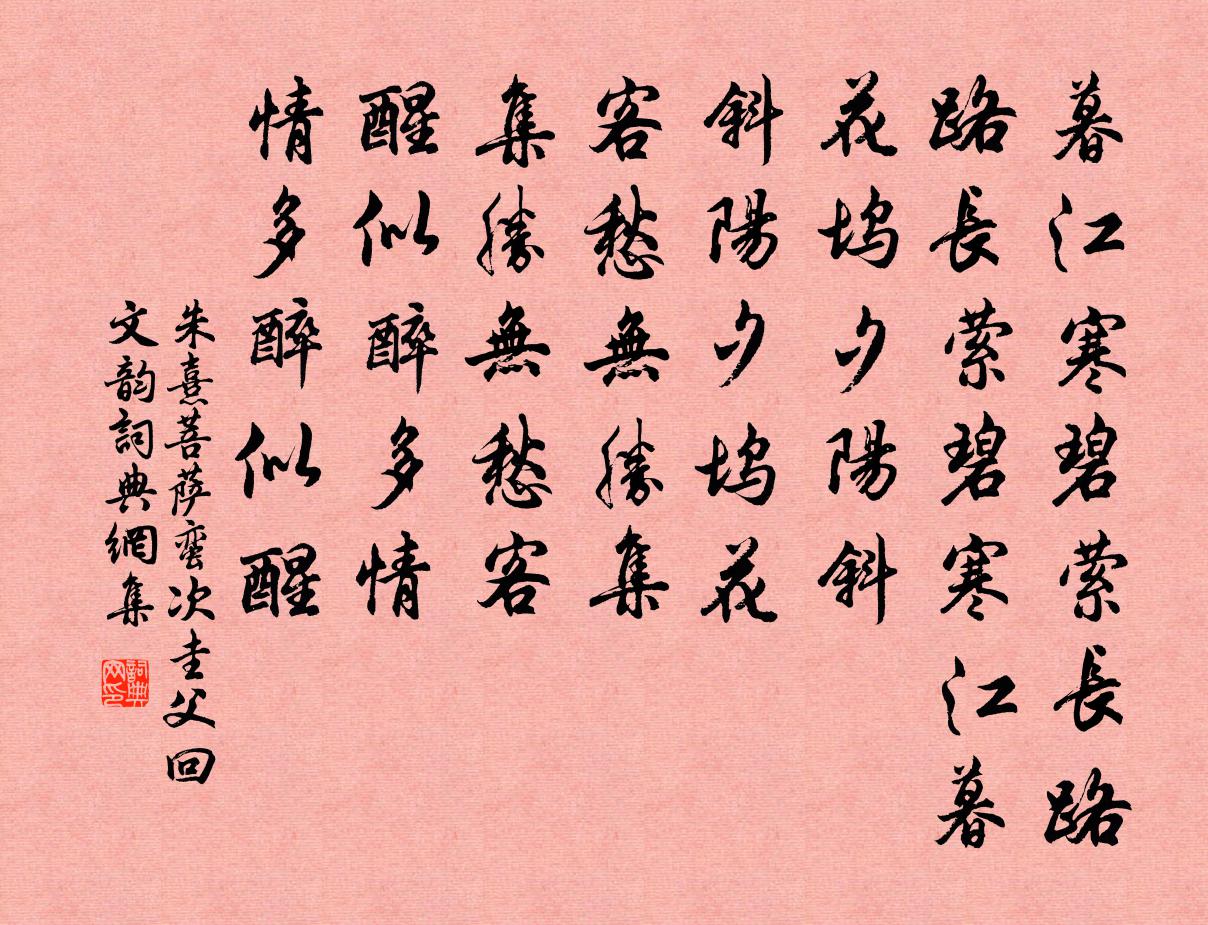 暮江寒碧萦長路
路長萦碧寒江暮
花坞夕陽斜
斜陽夕坞花
客愁無勝集
集勝無愁客
醒似醉多情
情多醉似醒
朱熹菩萨蛮次圭父回
文韵詞典網集
詞典
网印